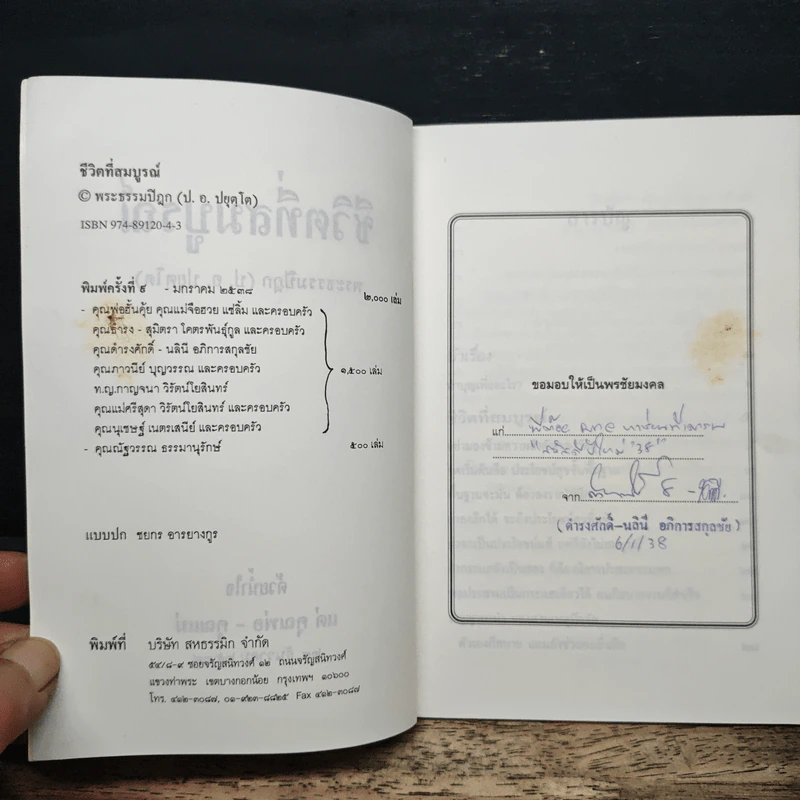 ชีวิตที่สมบูรณ์
© พระธรรมปิฎก (ป. อ. ปยุตฺโต)
ISBN 974-89120-4-3
พิมพ์ครั้งที่ ๙ - มกราคม ๒๕๓๘ ๒,๐๐๐ เล่ม
- คุณพ่อฮั้นคุ้ย คุณแม่จือฮวย แซ่ลิ้ม และครอบครัว
คุณธำรง - สุมิตรา โคตรพันธุ์กูล และครอบครัว
คุณดำรงศักดิ์ - นลินี อภิการสกุลชัย
คุณภาวนีย์ บุญวรรณ และครอบครัว ๑,๕๐๐ เล่ม
ท.ญ.กาญจนา วิรัตน์โยสินทร์
คุณแม่ศรีสุดา วิรัตน์โยสินทร์ และครอบครัว
คุณนุเชษฐ์ เนตรเสนีย์ และครอบครัว
- คุณณัฐวรรณ ธรรมานุรักษ์ ๕๐๐ เล่ม
แบบปก ชยกร อารยางกูร
พิมพ์ที่ บริษัท สหธรรมิก จำกัด
๕๔/๘-๙ ซอยจรัญสนิทวงศ์ ๑๒ ถนนจรัญสนิทวงศ์
แขวงท่าพระ เขตบางกอกน้อย กรุงเทพฯ ๑๐๖๐๐
โทร. ๔๑๒-๓๐๘๗, ๐๑-๙๒๓-๘๘๒๕ Fax ๔๑๒-๓๐๘๗
ขอมอบให้เป็นพรชัยมงคล
แก่
"สวัสดีปีใหม่ '38"
จาก
(ดำรงศักดิ์-นลินี อภิการสกุลชัย)
6/1/38